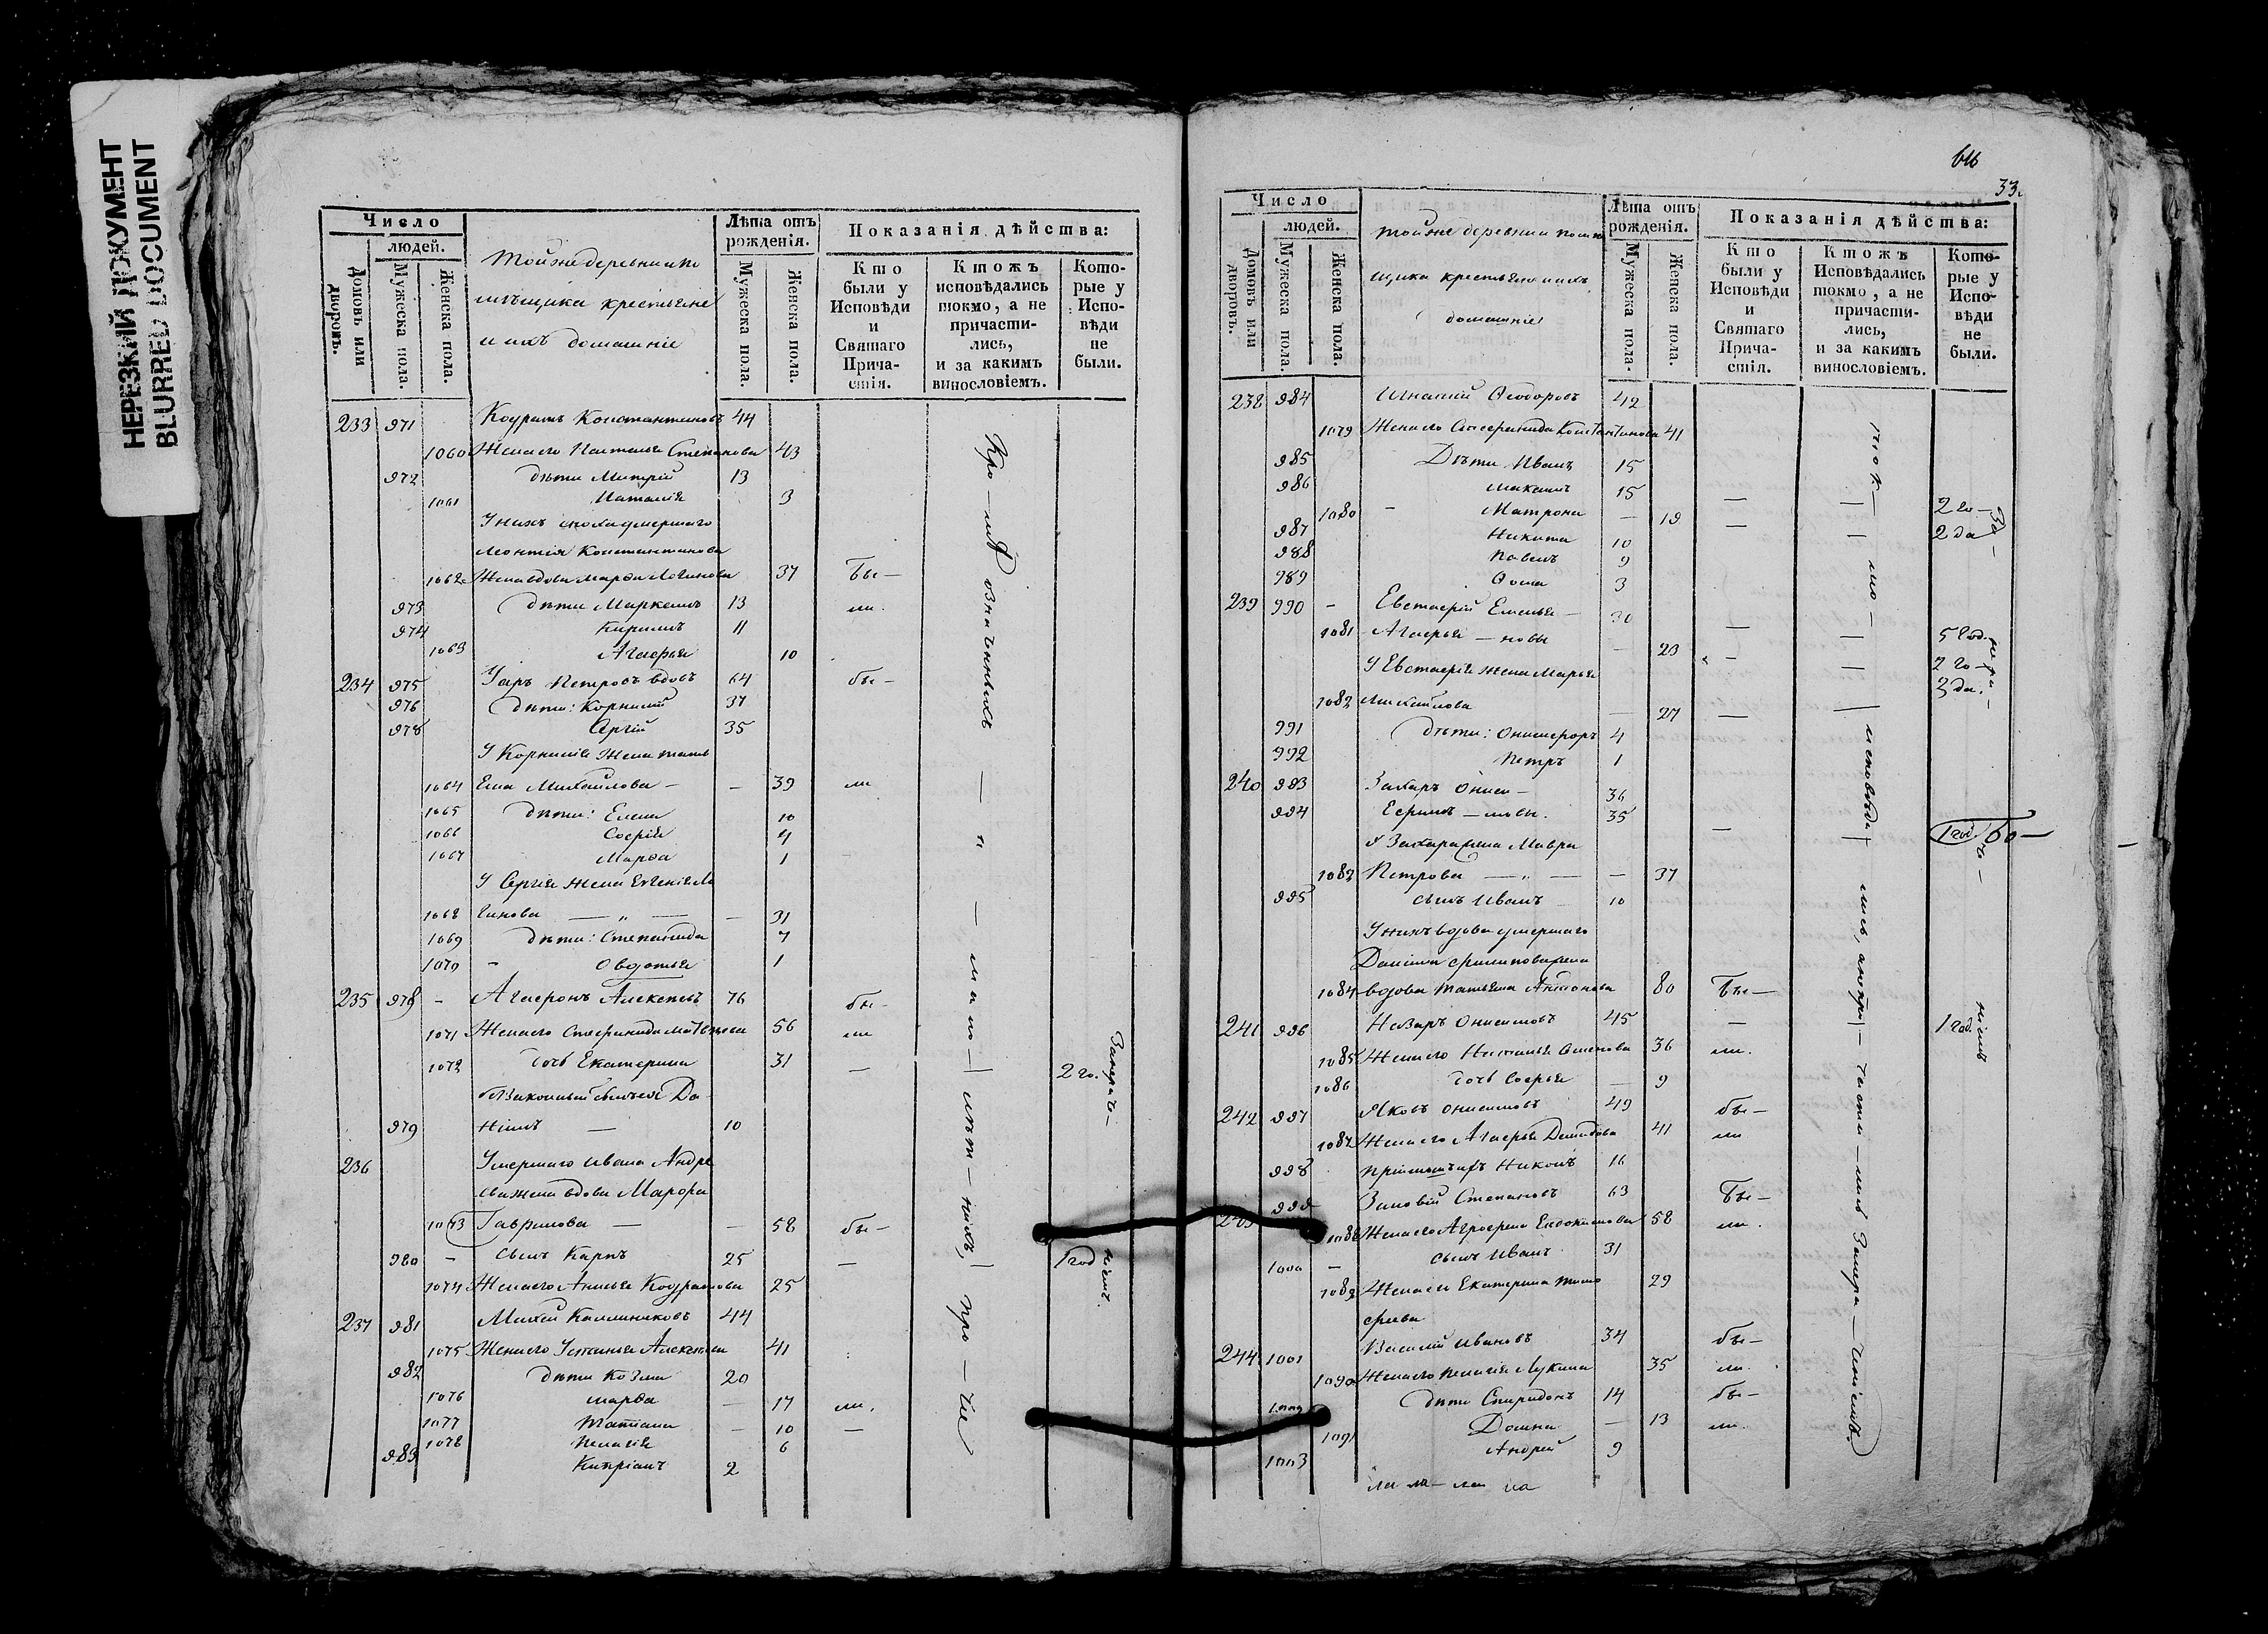 НЕРЕЗКИЙ ДОКУМЕНТ
BLURRED DOCUMENT
Число
людей.
Домовъ или дворовъ.
Мужеска пола.
Женска пола.
Тойже деревни по
мѣщика крестьяне
и ихъ домашніе
Лѣта отъ рожденія.
Мужеска пола.
Женска пола.
Показанія дѣйства:
Кто были у Исповѣди и Святаго Причастія.
Ктожъ исповѣдались токмо, а не причастились, и за какимъ винословіемъ.
Которые у Исповѣди не были.
233 971 Кодратъ Константиновъ 44
1060 Жена его Наталья Степанова 43
972 дѣти Митрій 13
1061 Наталія 3
У нихъ умершаго
Леонтія Константинова
1062 Жена вдова Марѳа Логинова 37 бы-
973 дѣти Маркелъ 13 ли.
974 Кирилъ 11
1063 Агафья 10
234 975 Уаръ Петровъ вдовъ 64 бы-
976 дѣти: Корнилій 37
978 Сергій 35
У Корнилія жена Татья
1064 Михайлова - - 39 ли
1065 дѣти: Елена 10
1066 Софія 4
1067 Марѳа 1
У Сергія жена Евгенія Ло
1068 гинова — „ — - 31
1069 дѣти: Степанида 7
1070 - Овдотья 1
235 978 - Агафонъ Алексѣевъ 76 бы-
1071 Жена его Стефанида Матвѣева 56 ли
1072 дочь Екатерина 31 — 2 го.
незаконный сынъ ея Да-
979 ніилъ — 10
236 Умершаго Ивана Андре
ева жена вдова Марфа
1073 Гаврилова — - 58 бы-
980 - сынъ Карпъ 25 — 1 год
1074 Жена его Анисья Кодратова 25
237 981 Михей Калинниковъ 44
1075 Жена его Устинья Алексѣева 41
982 дѣти Козма 20
1076 Марѳа — 17 ли.
1077 Татіана — 10 —
1078 Пелагія 6
983 Кипріанъ 2
Про-
означенныхъ
—
"
—
мало-
лѣт-
нихъ,
про-
чіе
33.
Число
людей.
Домовъ или дворовъ.
Мужеска пола.
Женска пола.
Тойже деревни помѣ
щика крестьяне и ихъ
домашніе
Лѣта отъ рожденія.
Мужеска пола.
Женска пола.
Показанія дѣйства:
Кто были у Исповѣди и Святаго Причастія.
Ктожъ Исповѣдались токмо, а не причастились, и за какимъ винословіемъ.
Которые у Исповѣди не были.
238 984 Игнатій Ѳеодоровъ 42
1079 Жена его Стефанида Константинова 41
985 Дѣти Иванъ 15
986 Макаръ 15 —
1080 - Матрона — 19 — 2 го-
987 Никита 10 2 да
988 Павелъ 9
989 Ѳома 3
239 990 - Евстафій Емелья — 30 —
1081 Агафья — новы — 23 — 5 год.
У Евстафія жена Марья 2 го-
1082 Михайлова — 27 — 3 да.
991 дѣти: Онисифоръ 4
992 Петръ 1
240 993 Захаръ Ониси- 36
994 Ефимъ — мовы. 35 — 1 год
У Захара жена Мавра
1083 Петрова — „ — — 37
995 сынъ Иванъ 10
У нихъ вдова умершаго
Даніила Филипова жена
1084 вдова Татьяна Антонова 80 бы-
241 996 Назаръ Онисимовъ 45 — 1 год.
1085 Жена его Наталья Семенова 36 ли.
1086 дочь Софья — 9
242 997 Яковъ Онисимовъ 49 бы-
1087 Жена его Агафья Демидова 41 ли
998 Никонъ 16
243 999 Зиновій Степановъ 63 бы-
1088 Жена его Агрофена Евдокимова 58 ли.
1000 - сынъ Иванъ 31
1089 Жена его Екатерина Тимо
феева 29
244 1001 Василій Ивановъ 34 бы-
1090 Жена его Пелагія Лукина 35 ли.
1002 дѣти Спиридонъ 14 бы-
1091 Домна — 13 ли.
1003 Андрей 9